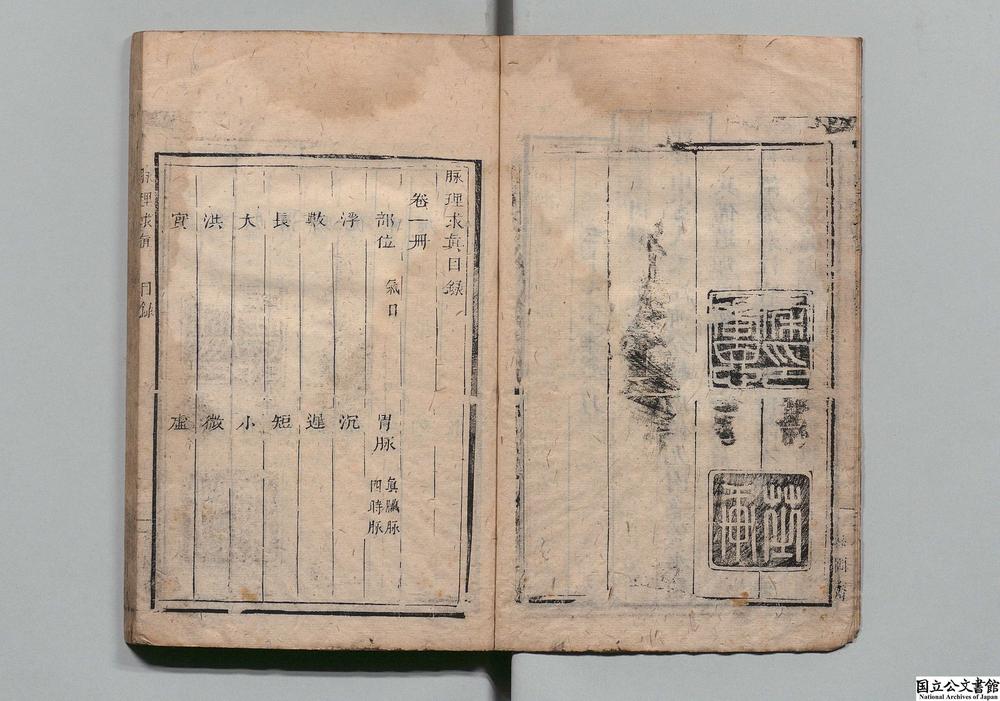 脉理求眞目錄
卷一册
部位 氣口 胃脉 眞臟脉 四時脉
浮 沉
數 遲
長 短
大 小
洪 微
實 虛
脉理求眞 目錄
国立公文書館
National Archives of Japan